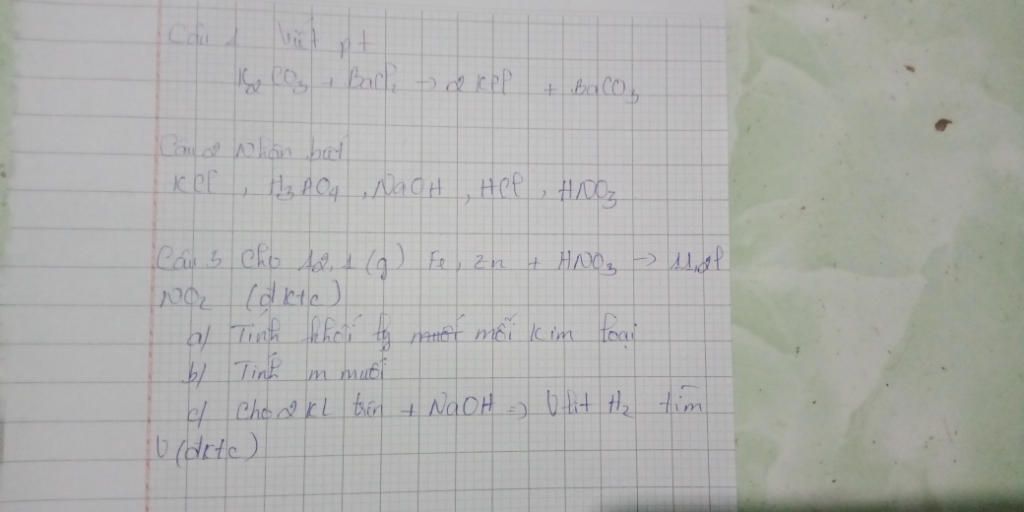 Câu 1 Viết pt
K2CO3 + BaCl2 → 2KCl + BaCO3
Câu 2 Nhận biết
KCl, H3PO4, NaOH, HCl, HNO3
Câu 3 Cho 12,1 (g) Fe, Zn + HNO3 → 11,2l
NO2 (đktc)
a) Tính khối lg muối mỗi kim loại
b) Tính m muối
c) Cho 2 KL trên + NaOH => V lit H2 tìm
V (đktc)